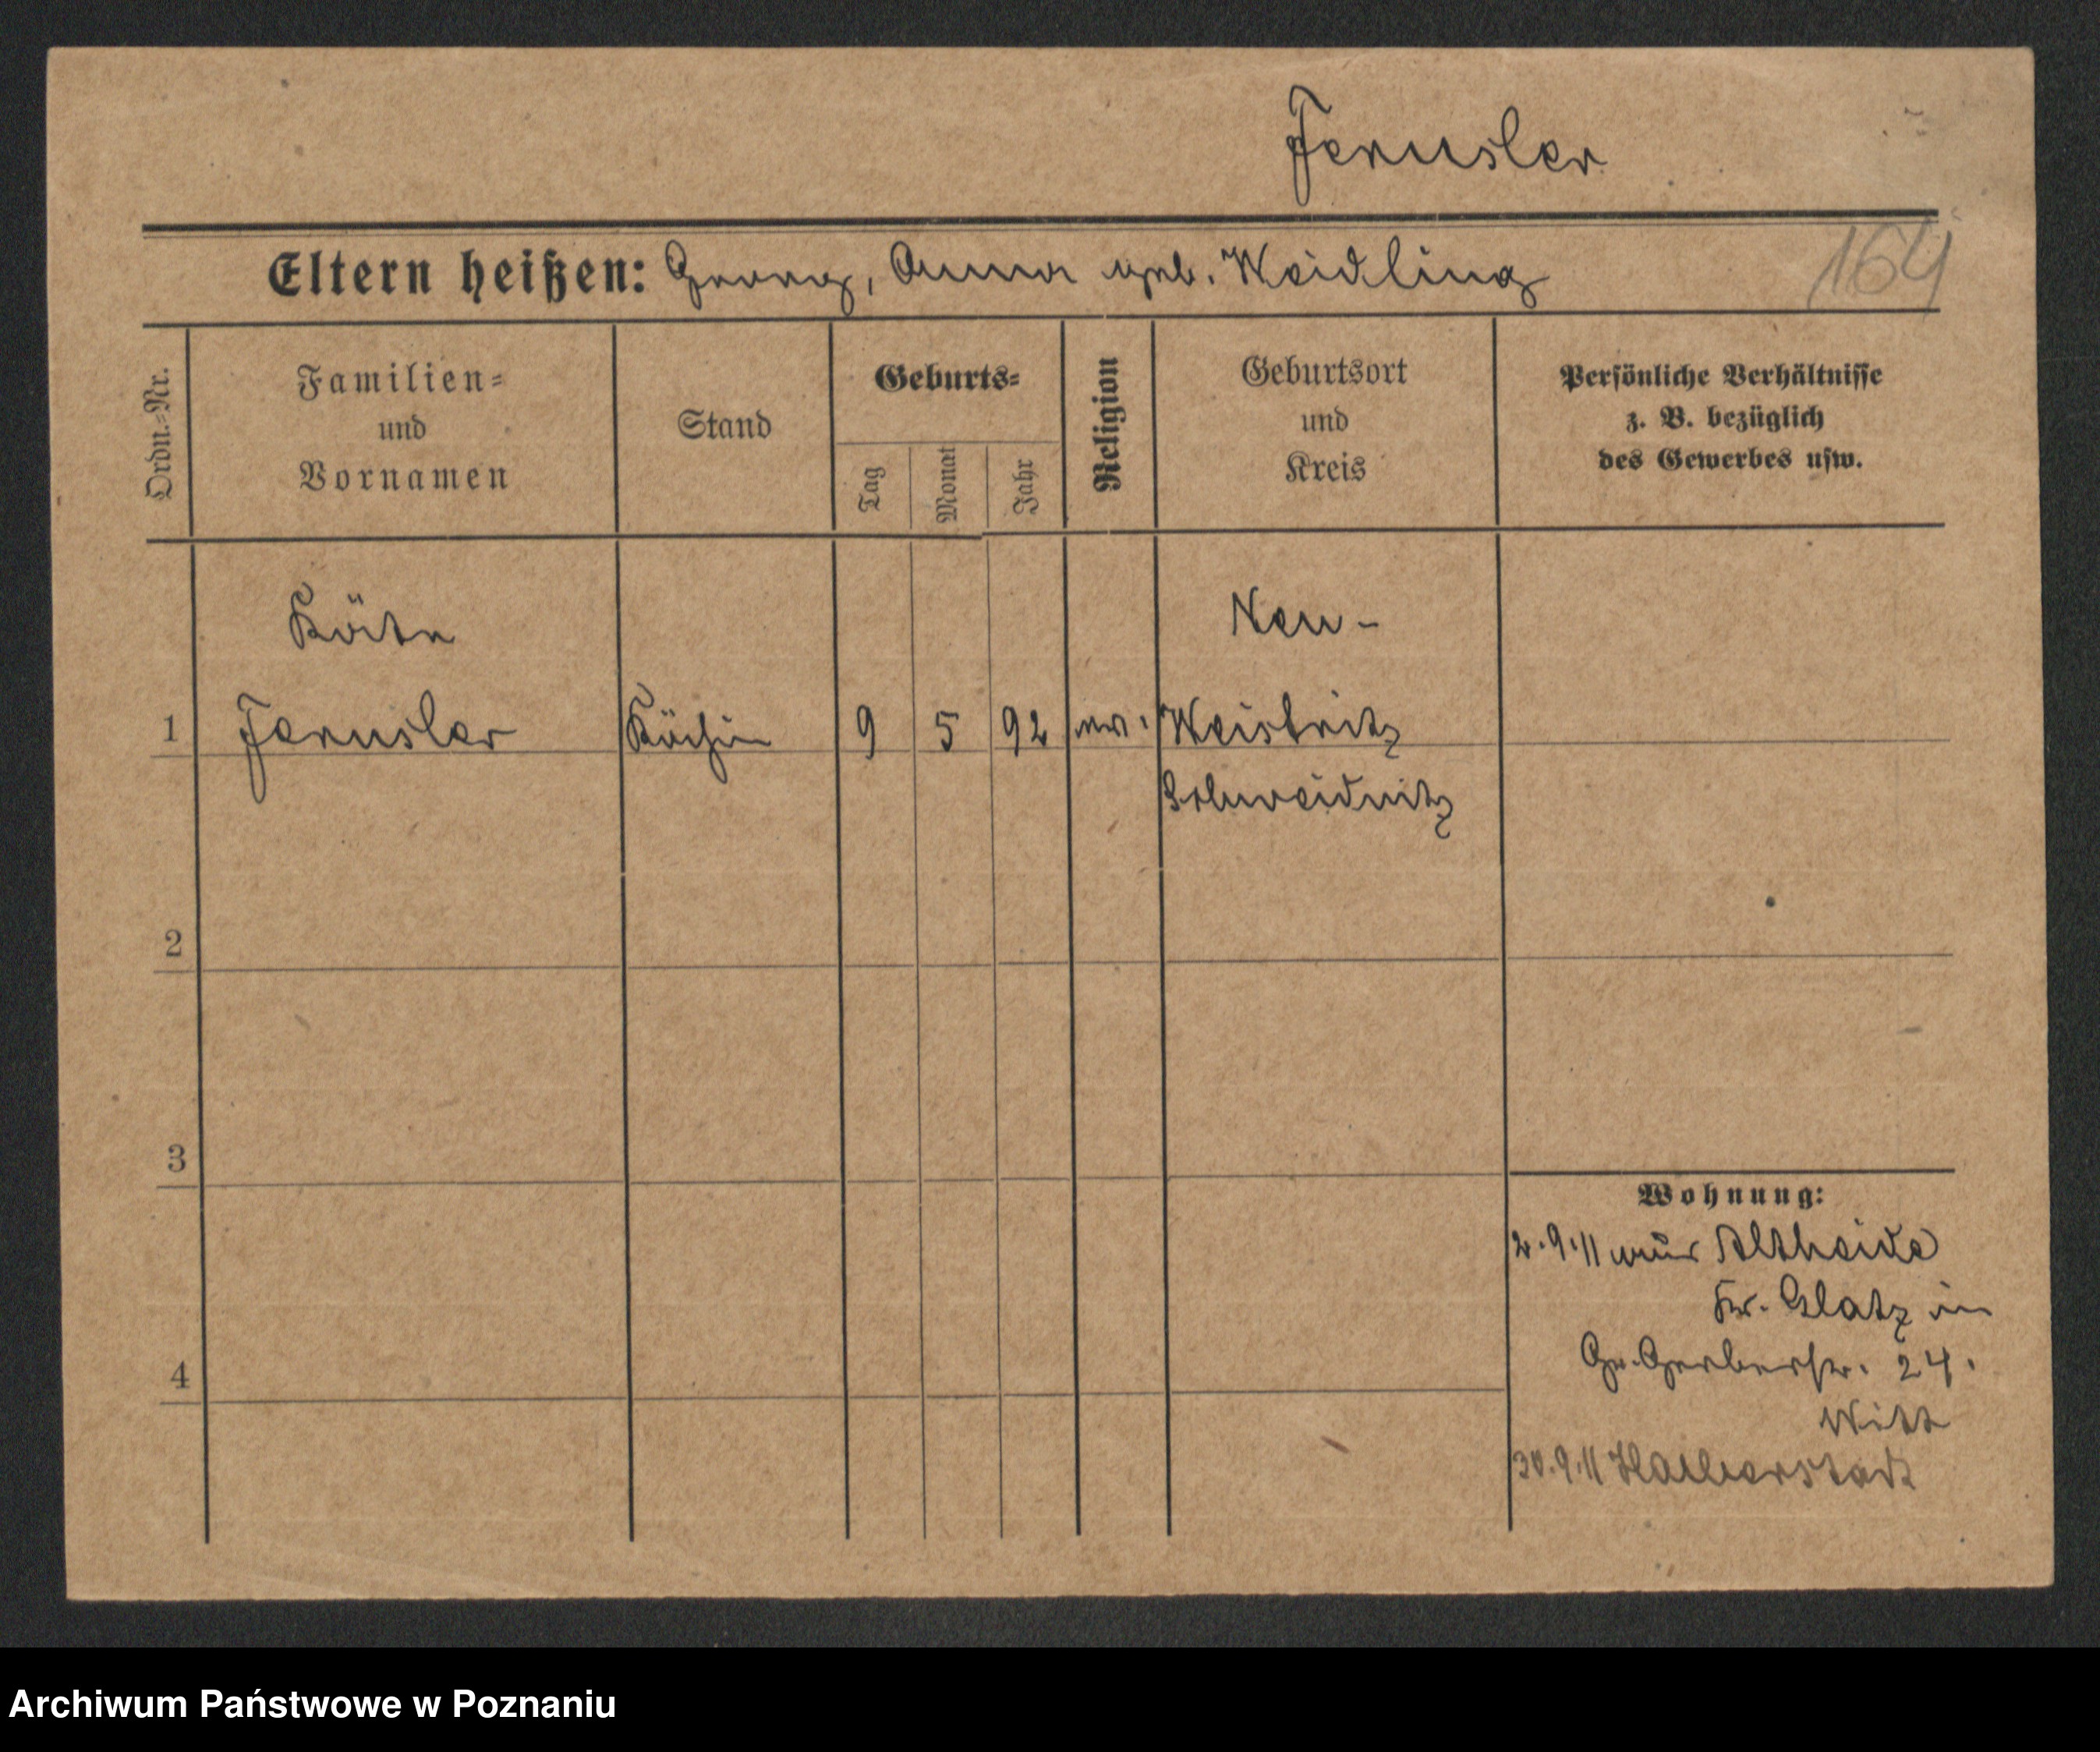 Jerusler
Eltern heißen: Georg, Anna geb. Weidling
164
Ordn.-Nr.
Familien-
und
Vornamen
Stand
Geburts-
Tag
Monat
Jahr
Religion
Geburtsort
und
Kreis
Persönliche Verhältnisse
z. B. bezüglich
des Gewerbes usw.
Käte
Neu-
1 Jerusler Köchin 9 5 92 ev. Weistritz
Schweidnitz
2
3
Wohnung:
2.9.11 aus Altheide
Kr. Glatz in
Gr. Gerberstr. 24.
4
Witt
30.9.11 Halberstadt
Archiwum Państwowe w Poznaniu